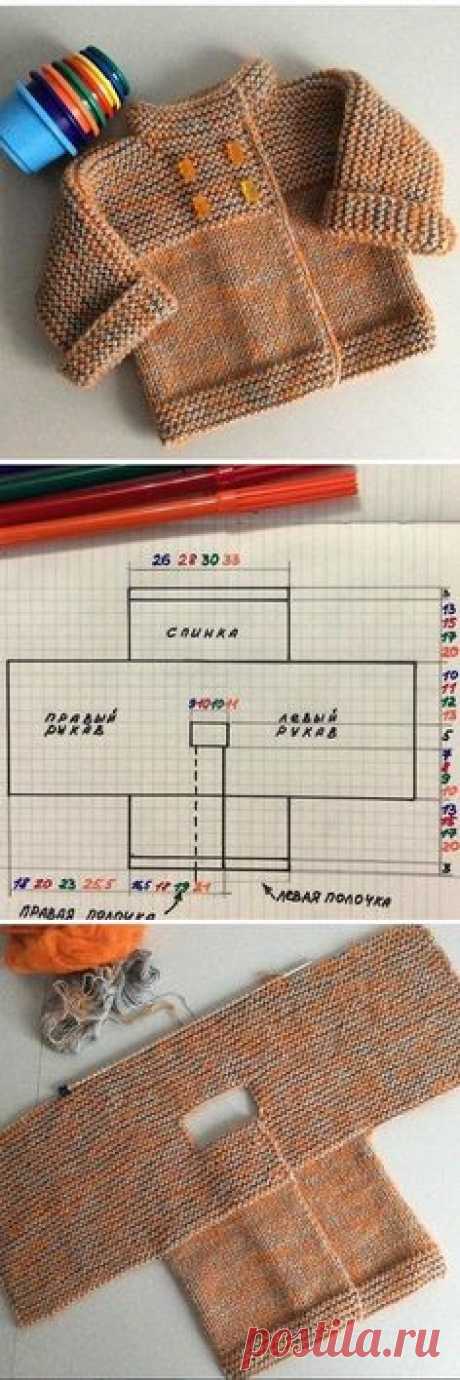 26 28 30 33
3
13
15
17
20
СПИНКА
10
11
12
13
9 10 10 11
ПРАВЫЙ
РУКАВ
ЛЕВЫЙ
РУКАВ
5
7
8
9
10
13
15
17
20
3
18 20 23 25,5
15,5 18 19 21
ПРАВАЯ ПОЛОЧКА
ЛЕВАЯ ПОЛОЧКА
postila.ru